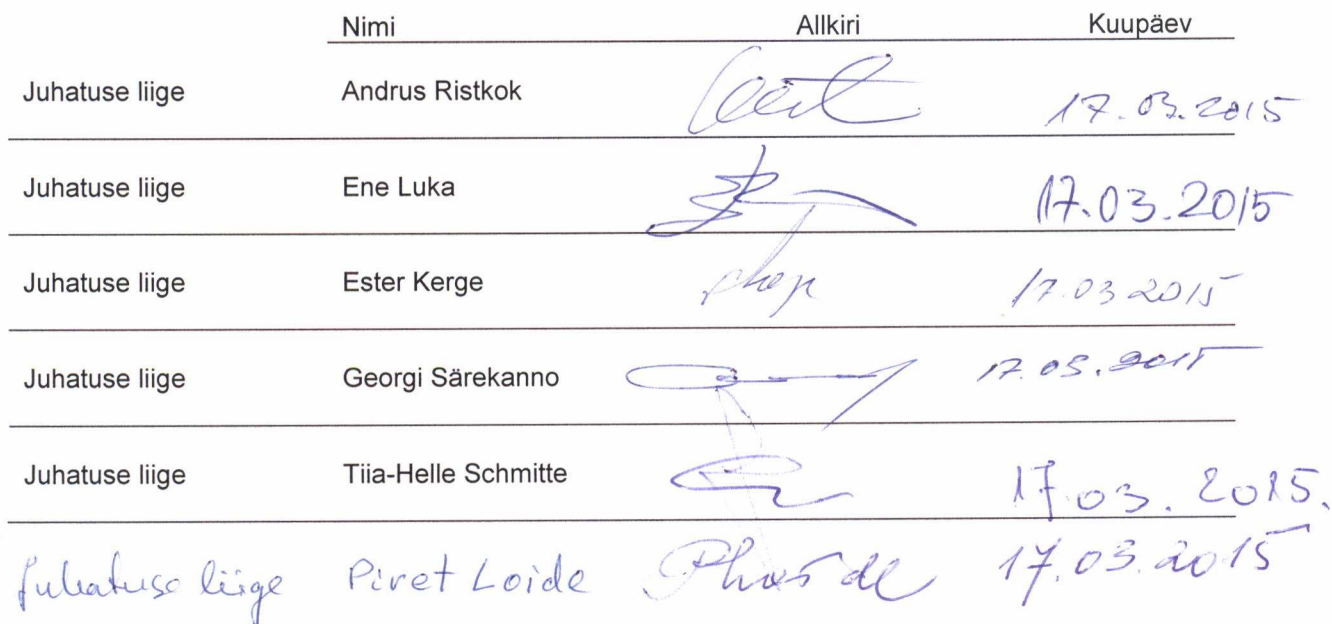 Nimi Allkiri Kuupäev
Juhatuse liige Andrus Ristkok 17.03.2015
Juhatuse liige Ene Luka 17.03.2015
Juhatuse liige Ester Kerge 17.03 2015
Juhatuse liige Georgi Särekanno 17.03.2015
Juhatuse liige Tiia-Helle Schmitte 17.03. 2015.
Juhatuse liige Piret Loide 17.03.2015